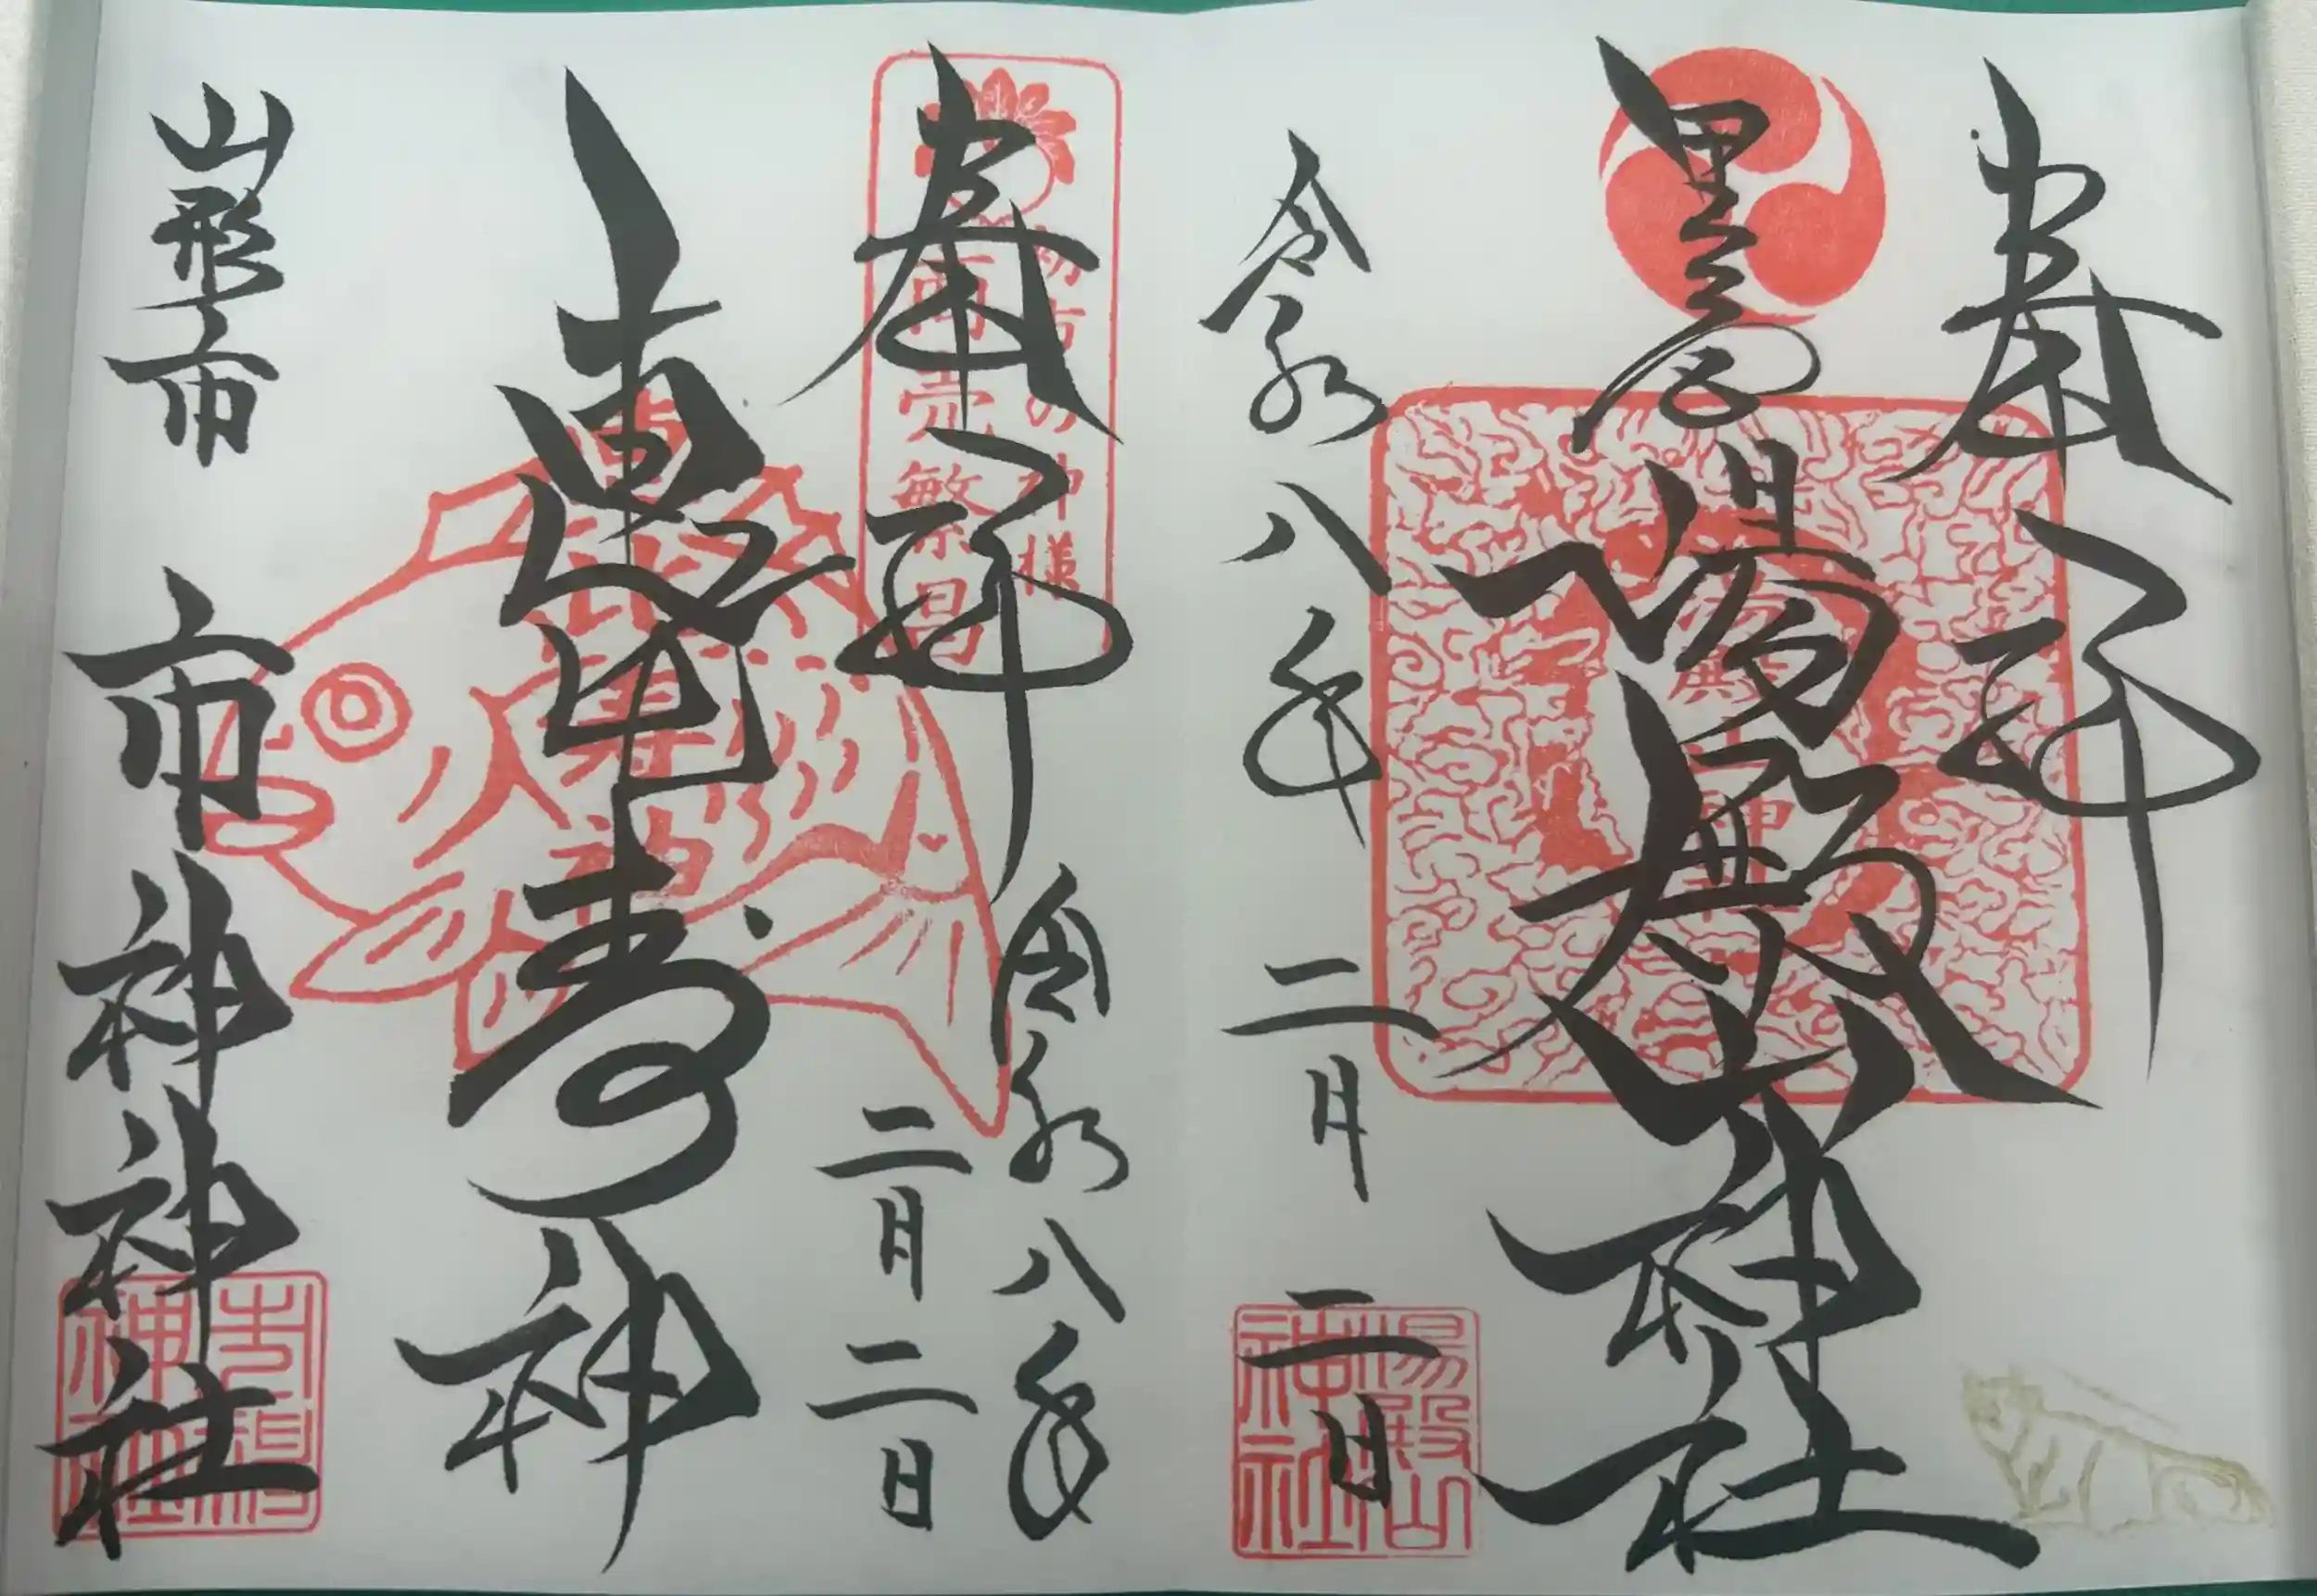 奉拝
里之宮
湯殿山神社
令和八年二月二日
湯殿山
神社
奉拝
初市の神様
商売繁昌
令和八年
二月二日
恵比寿神
山形市 市神神社
市神
神社